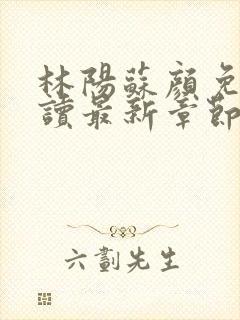 林陽蘇顏免
讀最新章節
六劃先生